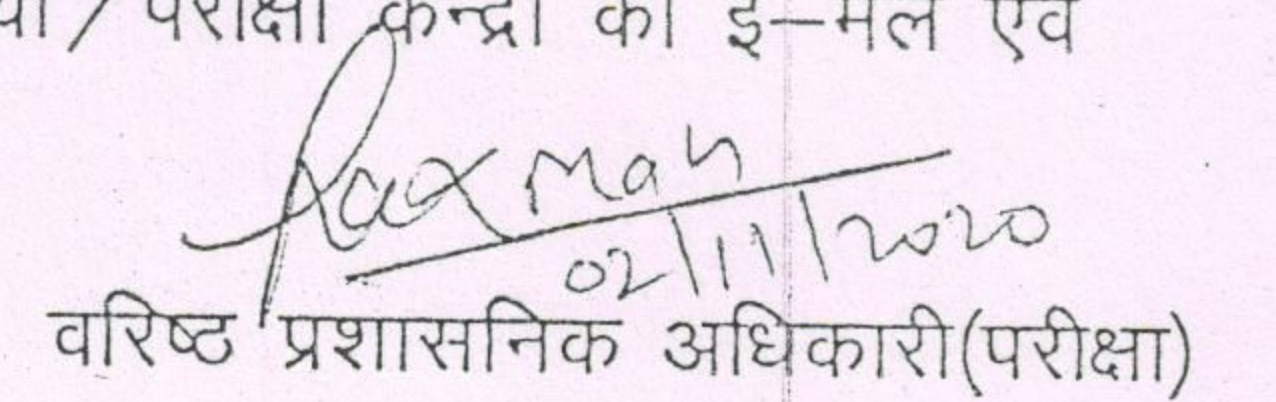 / परीक्षा केन्द्रों को ई-मेल एवं
Laxman
02/11/2020
वरिष्ठ प्रशासनिक अधिकारी(परीक्षा)